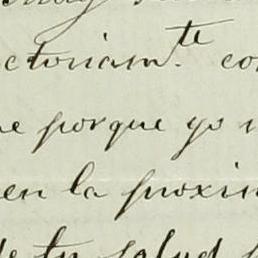 ctoriam.te co
e porque yo
en la proxim
de tu salud